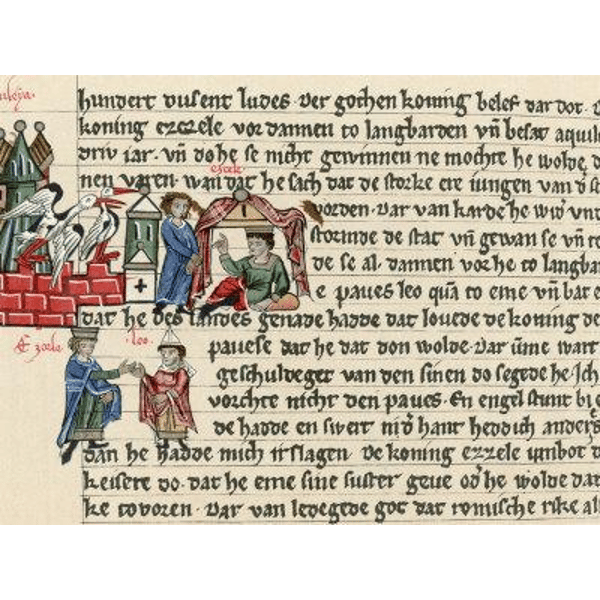 hundert dusent ludes. Der gothen koning belef dar dot.
koning ezzele vor dannen to langbarden vn̄ besat aquile
driv iar. vn̄ do he se nicht gewinnen ne mochte he wolde
nen varen. wan dat he sach dat de storke ere iungen van d
vorden. Dar van karde he wid vnde
storinde de stat vn̄ gewan se vn̄
de se al. dannen vor he to langbar
e paues leo quā to eme vn̄ bat
dat he des landes genade hadde dat louede de koning de
pauese dat he dat don wolde. Dar ūme wart
geschuldeget van den sinen do segede he. Ich
vorchte nicht den paues. En engel stunt bi
de hadde en swert in d hant hedd ich anders
dan he hadde mich irslagen. De koning ezzele umbot
keisere do. dat he eme sine suster geue od he wolde dat
ke tovoren. Dar van ledegede got dat romische rike al
leo.